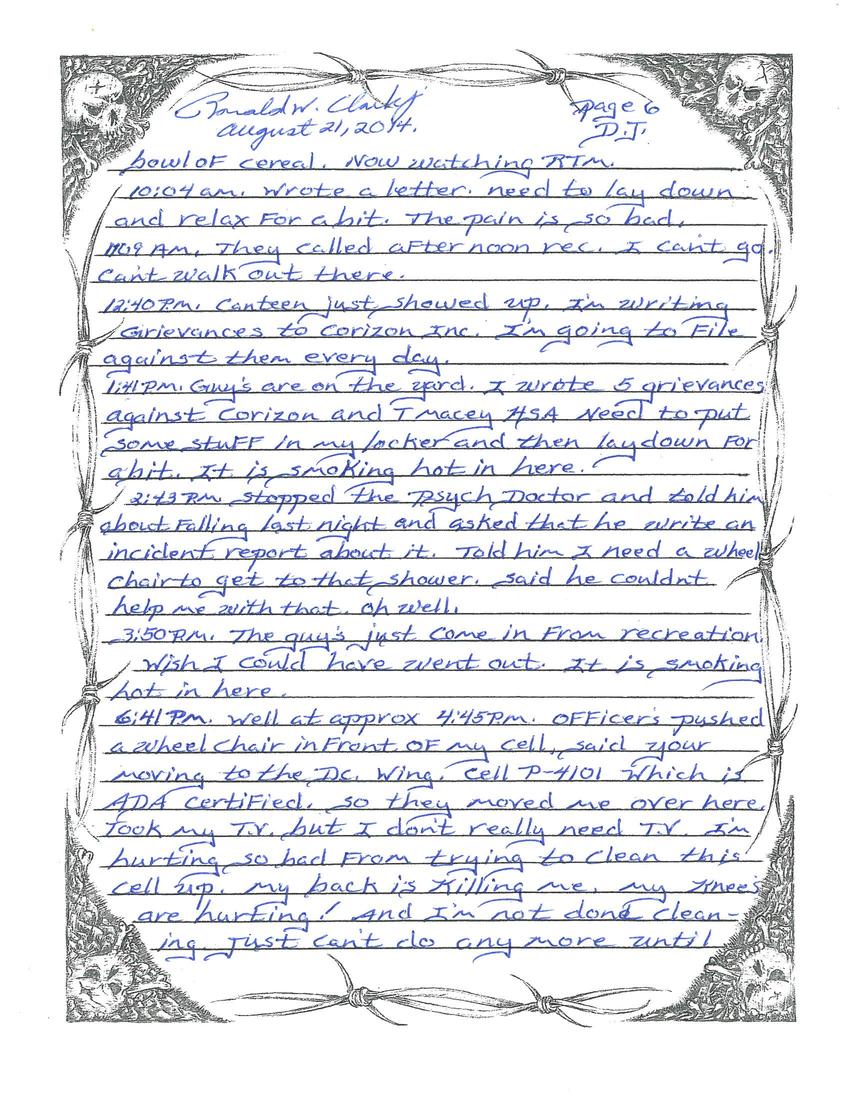 Ronald W. Clark Jr
August 21, 2014.
page 6
D.J.
bowl of cereal. Now watching RTM.
10:04 am. Wrote a letter. need to lay down
and relax for a bit. The pain is so bad.
AM. They called afternoon rec. I can't go.
can't walk out there.
12:40 P.M. Canteen just showed up. I'm writing
Grievances to Corizon Inc. I'm going to File
against them every day.
1:41 PM. Guy's are on the yard. I wrote 5 grievances
against Corizon and T Macey HSA Need to put
some stuff in my locker and then lay down For
a bit. It is smoking hot in here.
2:43 PM stopped the Psych Doctor and told him
about Falling last night and asked that he write an
incident report about it. Told him I need a wheel
chair to get to that shower. said he couldnt
help me with that. oh well.
3:50 P.M. The guy's just come in From recreation.
Wish I could have went out. It is smoking
hot in here.
6:41 PM. Well at approx 4:45 PM. OFFicer's pushed
a wheel chair in Front OF my cell, said your
moving to the D.C. Wing. Cell P-4101 Which is
ADA certiFied. so they moved me over here.
Took my T.V. but I don't really need T.V. I'm
hurting so bad From trying to clean this
cell up. my back is Killing me. my Knee's
are hurting! And I'm not done clean-
ing. Just can't do any more until